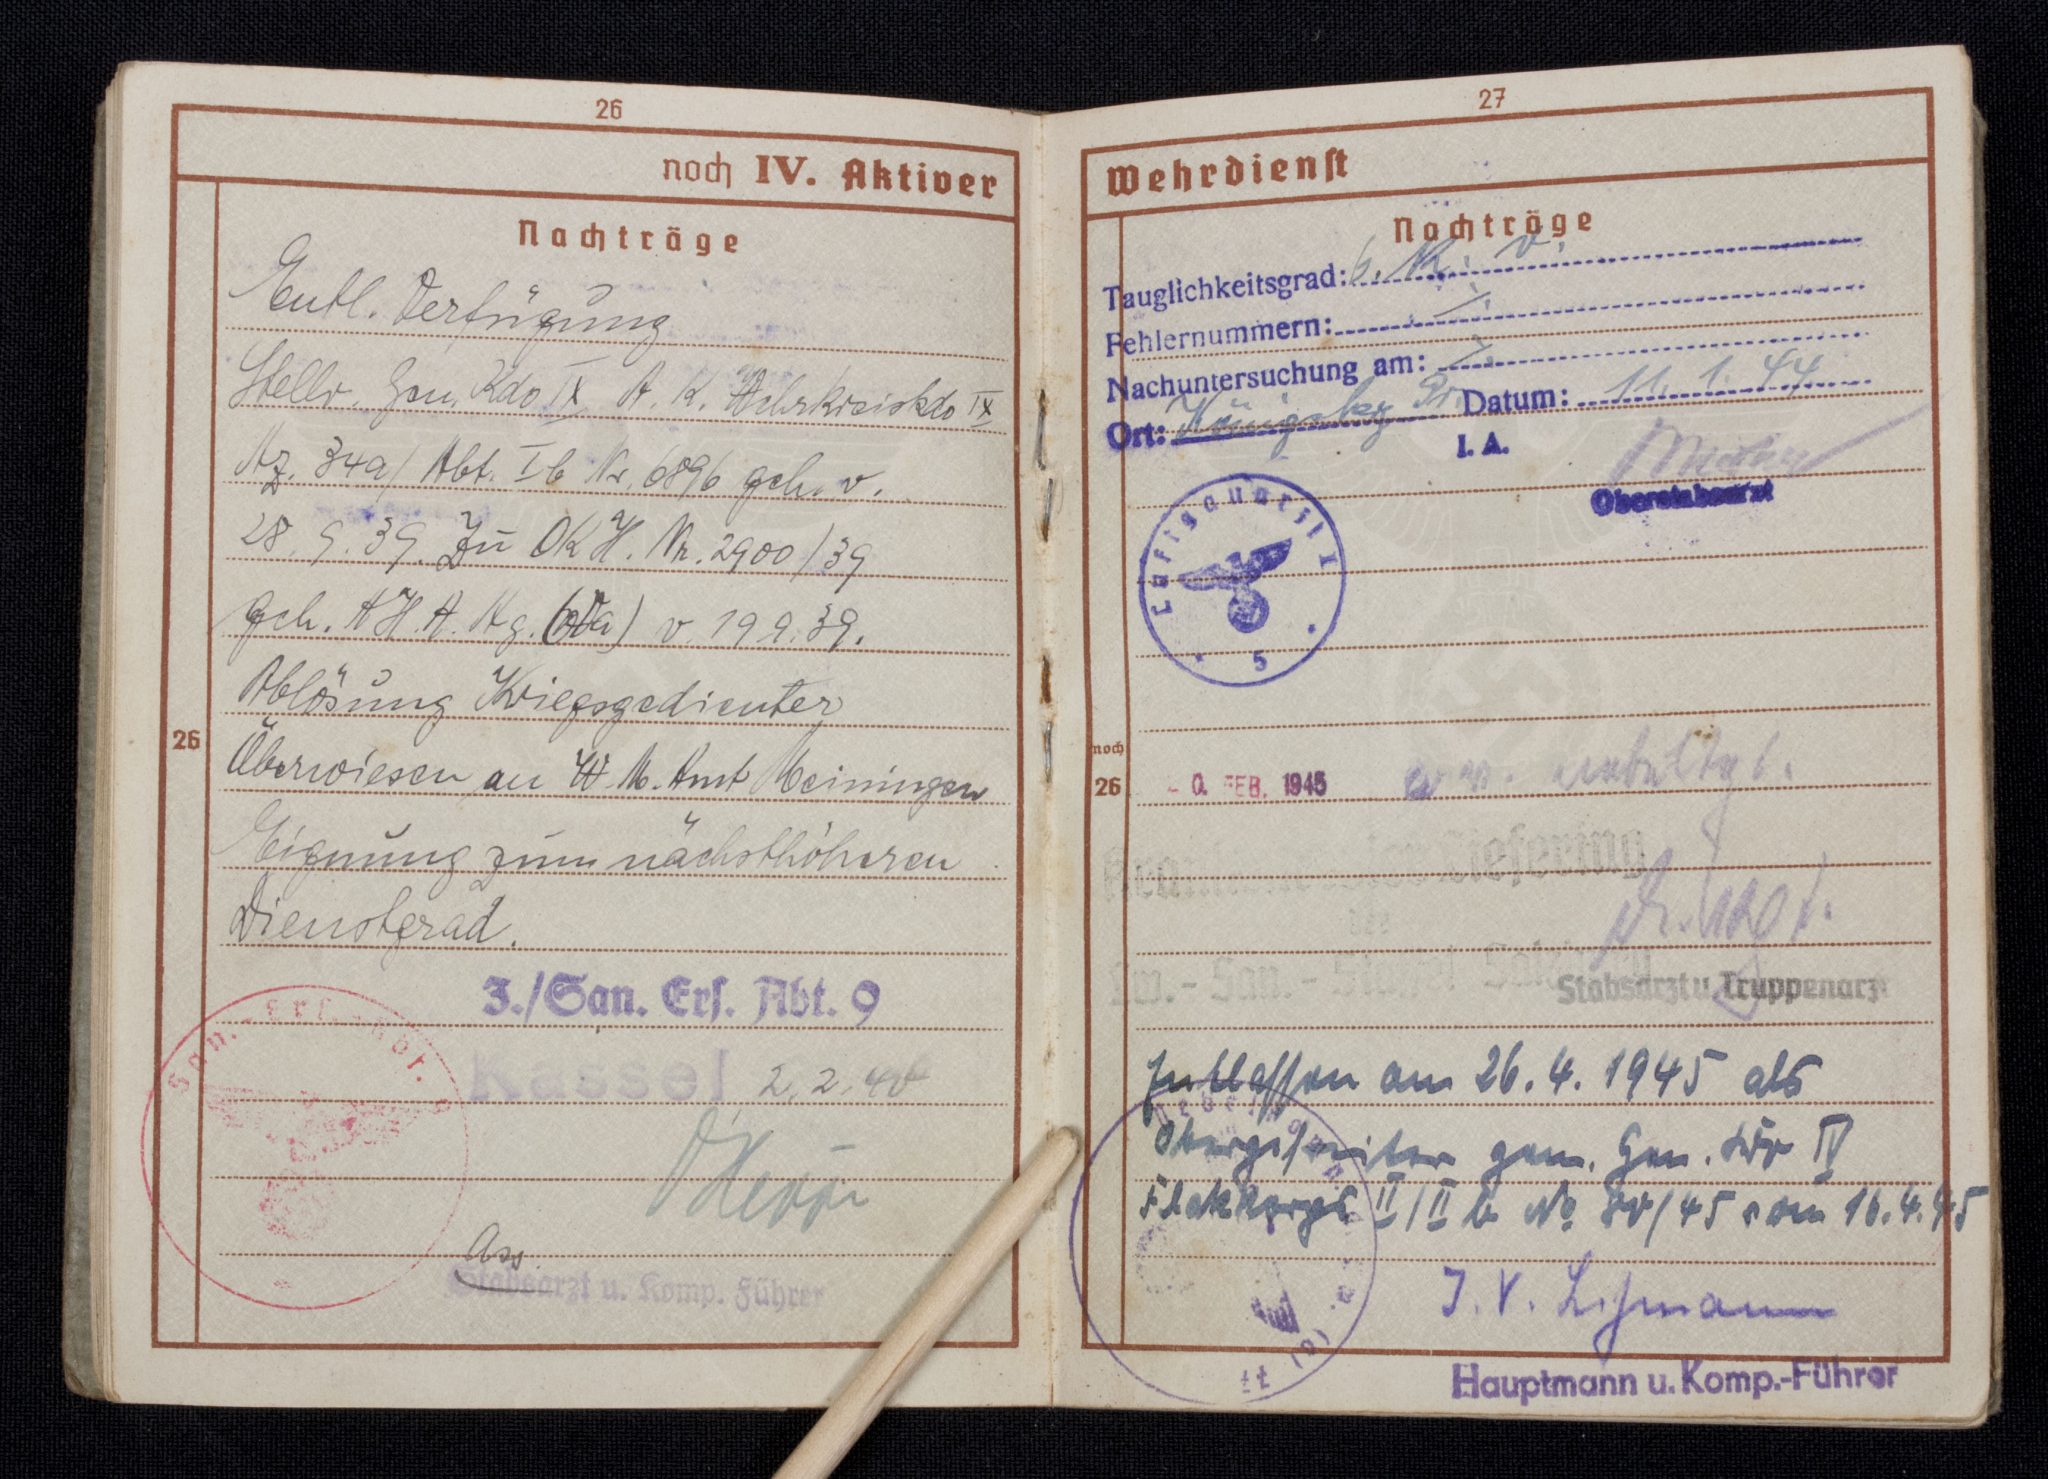 26
noch IV. Aktiver
Nachträge
Entl. Verfügung
Stellv. Gen. Kdo IX A. K. Wehrkreiskdo IX
Az. 34a/ Abt. Ib Nr. 6896 geh. v.
28. 9. 39. Zu OKH. Nr. 2900/39
geh. AHA. Ag. v. 19 9. 39.
Ablösung Kriegsgedienter
26
Überwiesen an W. M. Amt Meiningen
Eignung zum nächsthöheren
Dienstgrad.
3./San. Ers. Abt. 9
Kassel 2. 2. 40
San. - Ers. - Abt.
Ass.
Stabsarzt u. Komp. Führer
27
Wehrdienst
Nachträge
Tauglichkeitsgrad: k. v.
Fehlernummern:
Nachuntersuchung am:
Ort: Königsbg Pr. Datum: 11. 1. 44
I. A.
Oberstabsarzt
Luftgauarzt I
5
noch
26
FEB. 1945
Liefering
Lw.- San.- Staffel Salzburg
Stabsarzt u. Truppenarzt
Entlassen am 26. 4. 1945 als
Obergefreiter gem. Gen. Kdo IV
Flakkorps II/II b No /45 vom 16. 4. 45
I. V. Lehmann
Hauptmann u. Komp.-Führer